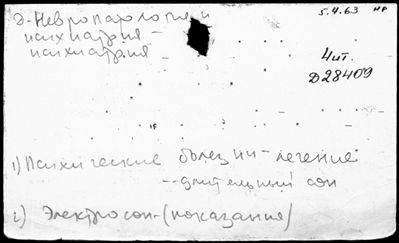 Э-Невропатология и
психиатрия -
психиатрия
5.4.63 НР
Чит.
D28409
1) Психические болезни - лечение
-- длительный сон
2) Электросон - (показания)